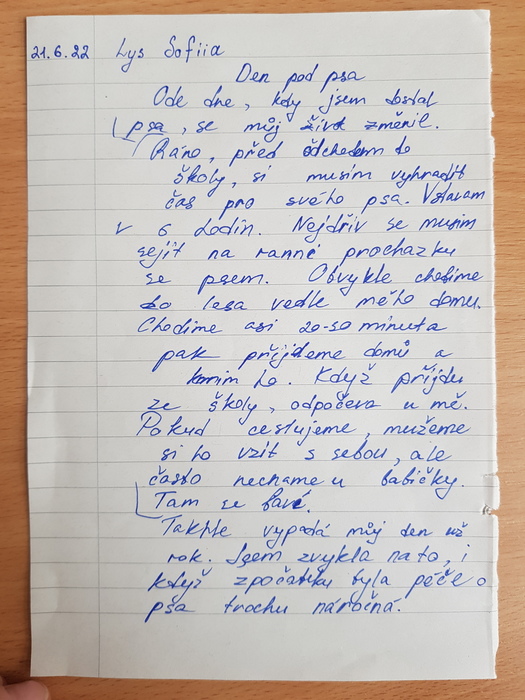 21.6.22 Lys Sofiia
Den pod psa
Ode dne, kdy jsem dostal
psa, se můj život změnil.
Ráno, před odchodem do
školy, si musím vyhradit
čas pro svého psa. Vstavam
v 6 hodin. Nejdřív se musim
sejít na ranné prochazku
se psem. Obvykle chodime
do lesa vedle mého domu.
Chodime asi 20-30 minuta
pak přijdeme domů a
krmim ho. Když přijdu
ze školy, odpočeva u mě.
Pokud cestujeme, mužeme
si ho vzít s sebou, ale
často nechame u babičky.
Tam se baví.
Takhle vypadá můj den už
rok. Jsem zvykla na to, i
když zpočatku byla péče o
psa trochu náročná.